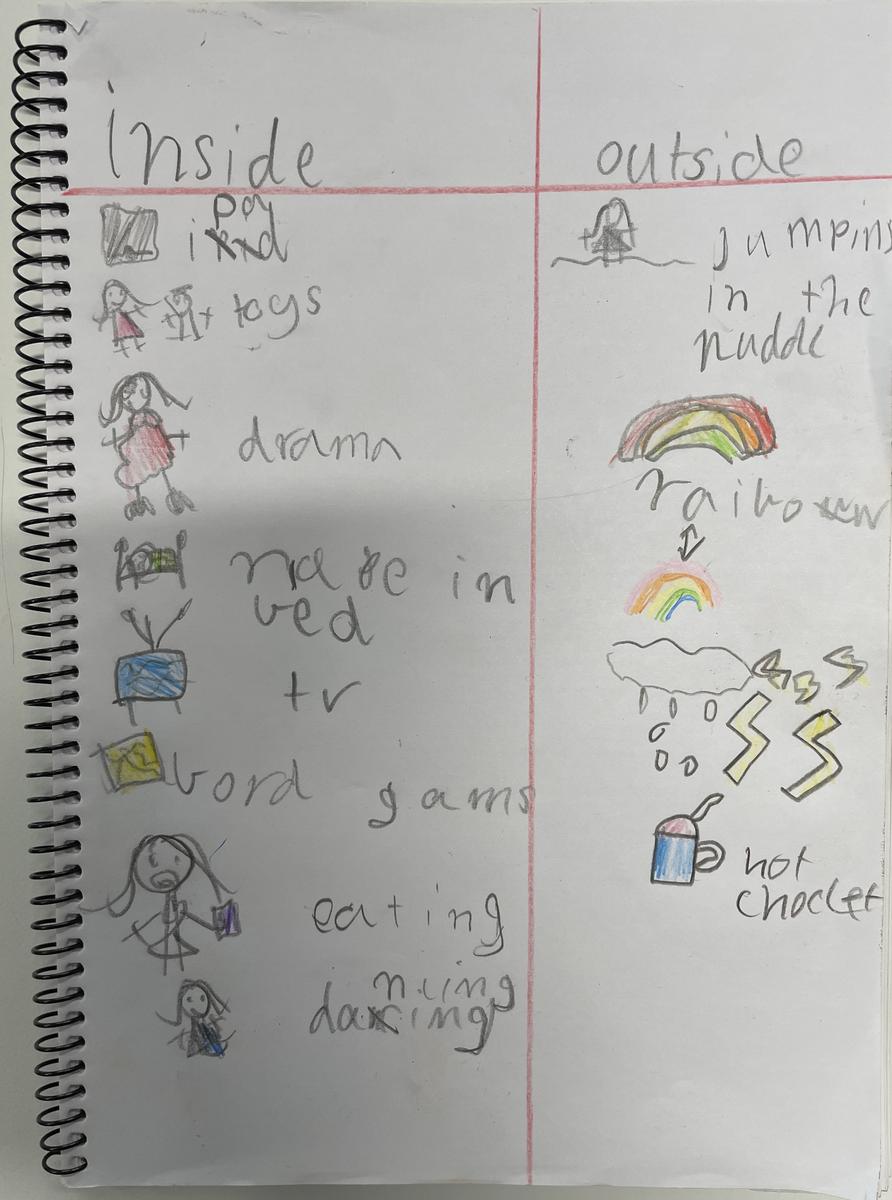 inside
pad
toys
drama
in
bed
tv
bord gams
eating
dancing
outside
jumping
in the
puddle
hot
choclet